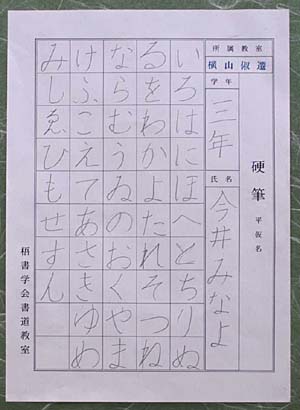 硬筆 平仮名
所属教室
横山淑
学年
三年
氏名
今井みなよ
いろはにほへとちりぬ
るをわかよたれそつね
ならむうゐのおくやま
けふこえてあさきゆめ
みしゑひもせすん
書学会書道教室